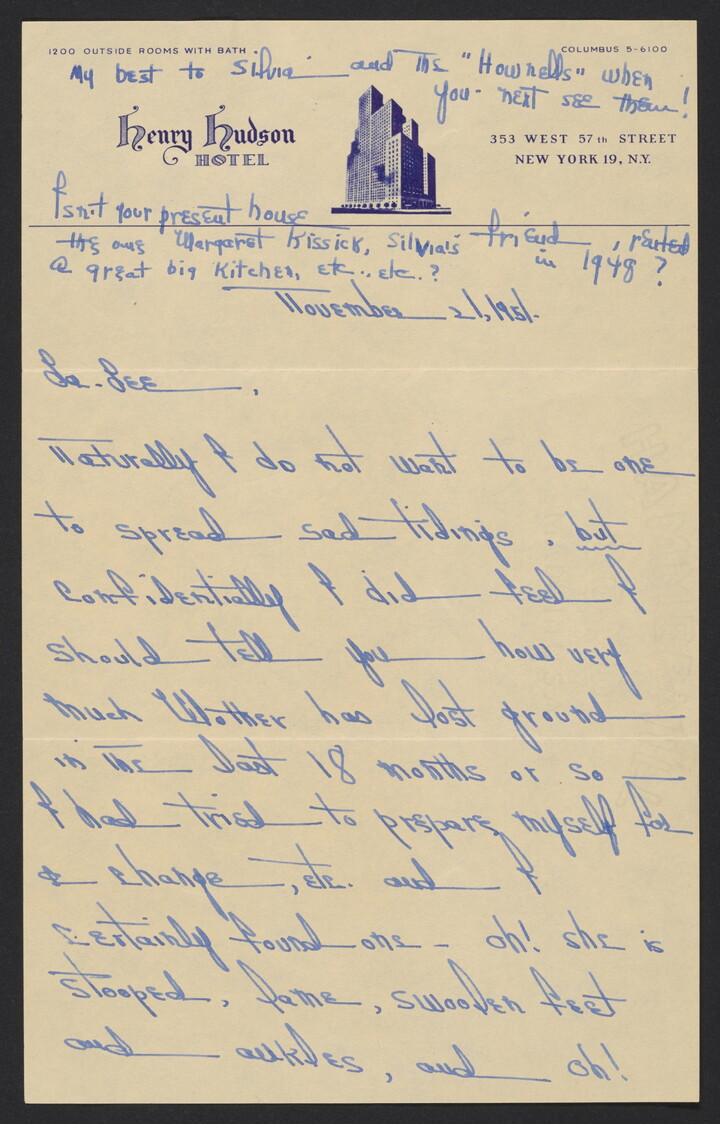 1200 OUTSIDE ROOMS WITH BATH
COLUMBUS 5-6100
My best to Silvia and the "Hownells" when
you next see them!
Henry Hudson
HOTEL
353 WEST 57th STREET
NEW YORK 19, N.Y.
Isn't your present house
the one Margaret Kissick, Silvia's friend, rented
a great big kitchen, etc., etc.? in 1948?
November 21, 1951.
La-Lee,
Naturally I do not want to be one
to spread sad tidings, but
confidentially I did feel I
should tell you how very
much Mother has lost ground
in the last 18 months or so
I had tried to prepare myself for
a change, etc. and I
certainly found one - oh! she is
stooped, lame, swoolen feet
and ankles, and oh!